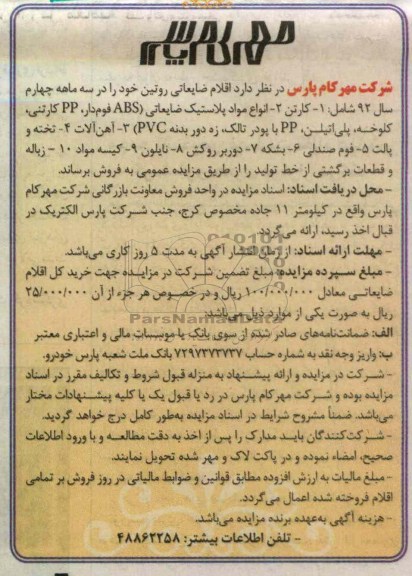 مهرکام پارس
شرکت مهرکام پارس در نظر دارد اقلام ضایعاتی روتین خود را در سه ماهه چهارم
سال ۹۲ شامل: ۱- کارتن ۲- انواع مواد پلاستیک ضایعاتی (ABS فوم‌دار، PP کارتنی،
کلوخه، پلی‌اتیلن، PP با پودر تالک، زه دور بدنه PVC) ۳- آهن‌آلات ۴- تخته و
پالت ۵- فوم صندلی ۶- بشکه ۷- دوربر روکش ۸- نایلون ۹- کیسه مواد ۱۰ - زباله
و قطعات برگشتی از خط تولید را از طریق مزایده عمومی به فروش برساند.
- محل دریافت اسناد: اسناد مزایده در واحد فروش معاونت بازرگانی شرکت مهرکام
پارس واقع در کیلومتر ۱۱ جاده مخصوص کرج، جنب شرکت پارس الکتریک در
قبال اخذ رسید، ارائه می‌گردد.
- مهلت ارائه اسناد: از زمان انتشار آگهی به مدت ۵ روز کاری می‌باشد.
- مبلغ سپرده مزایده: مبلغ تضمین شرکت در مزایده جهت خرید کل اقلام
ضایعاتی معادل ۱۰۰/۰۰۰/۰۰۰ ریال و در خصوص هر جزء از آن ۲۵/۰۰۰/۰۰۰
ریال به صورت یکی از موارد ذیل می‌باشد.
الف: ضمانت‌نامه‌های صادر شده از سوی بانک یا موسسات مالی و اعتباری معتبر
ب: واریز وجه نقد به شماره حساب ۷۲۹۷۳۷۳۷۳۷ بانک ملت شعبه پارس خودرو.
- شرکت در مزایده و ارائه پیشنهاد به منزله قبول شروط و تکالیف مقرر در اسناد
مزایده بوده و شرکت مهرکام پارس در رد یا قبول یک یا کلیه پیشنهادات مختار
می‌باشد. ضمناً مشروح شرایط در اسناد مزایده به‌طور کامل درج خواهد گردید.
- شرکت‌کنندگان باید مدارک را پس از اخذ به دقت مطالعه و با ورود اطلاعات
صحیح، امضاء نموده و در پاکت لاک و مهر شده تحویل نمایند.
- مبلغ مالیات به ارزش افزوده مطابق قوانین و ضوابط مالیاتی در روز فروش بر تمامی
اقلام فروخته شده اعمال می‌گردد.
- هزینه آگهی به‌عهده برنده مزایده می‌باشد.
- تلفن اطلاعات بیشتر: ۴۸۸۶۲۲۵۸